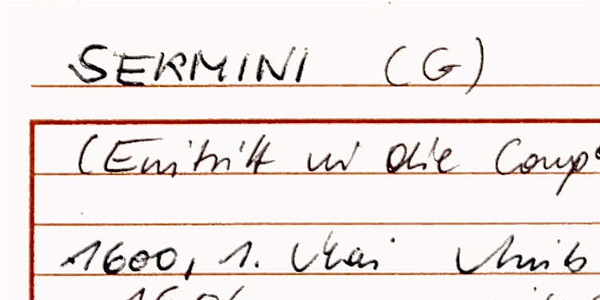 SERMINI (G)
(Eintritt in die Comp
1600, 1. Mai